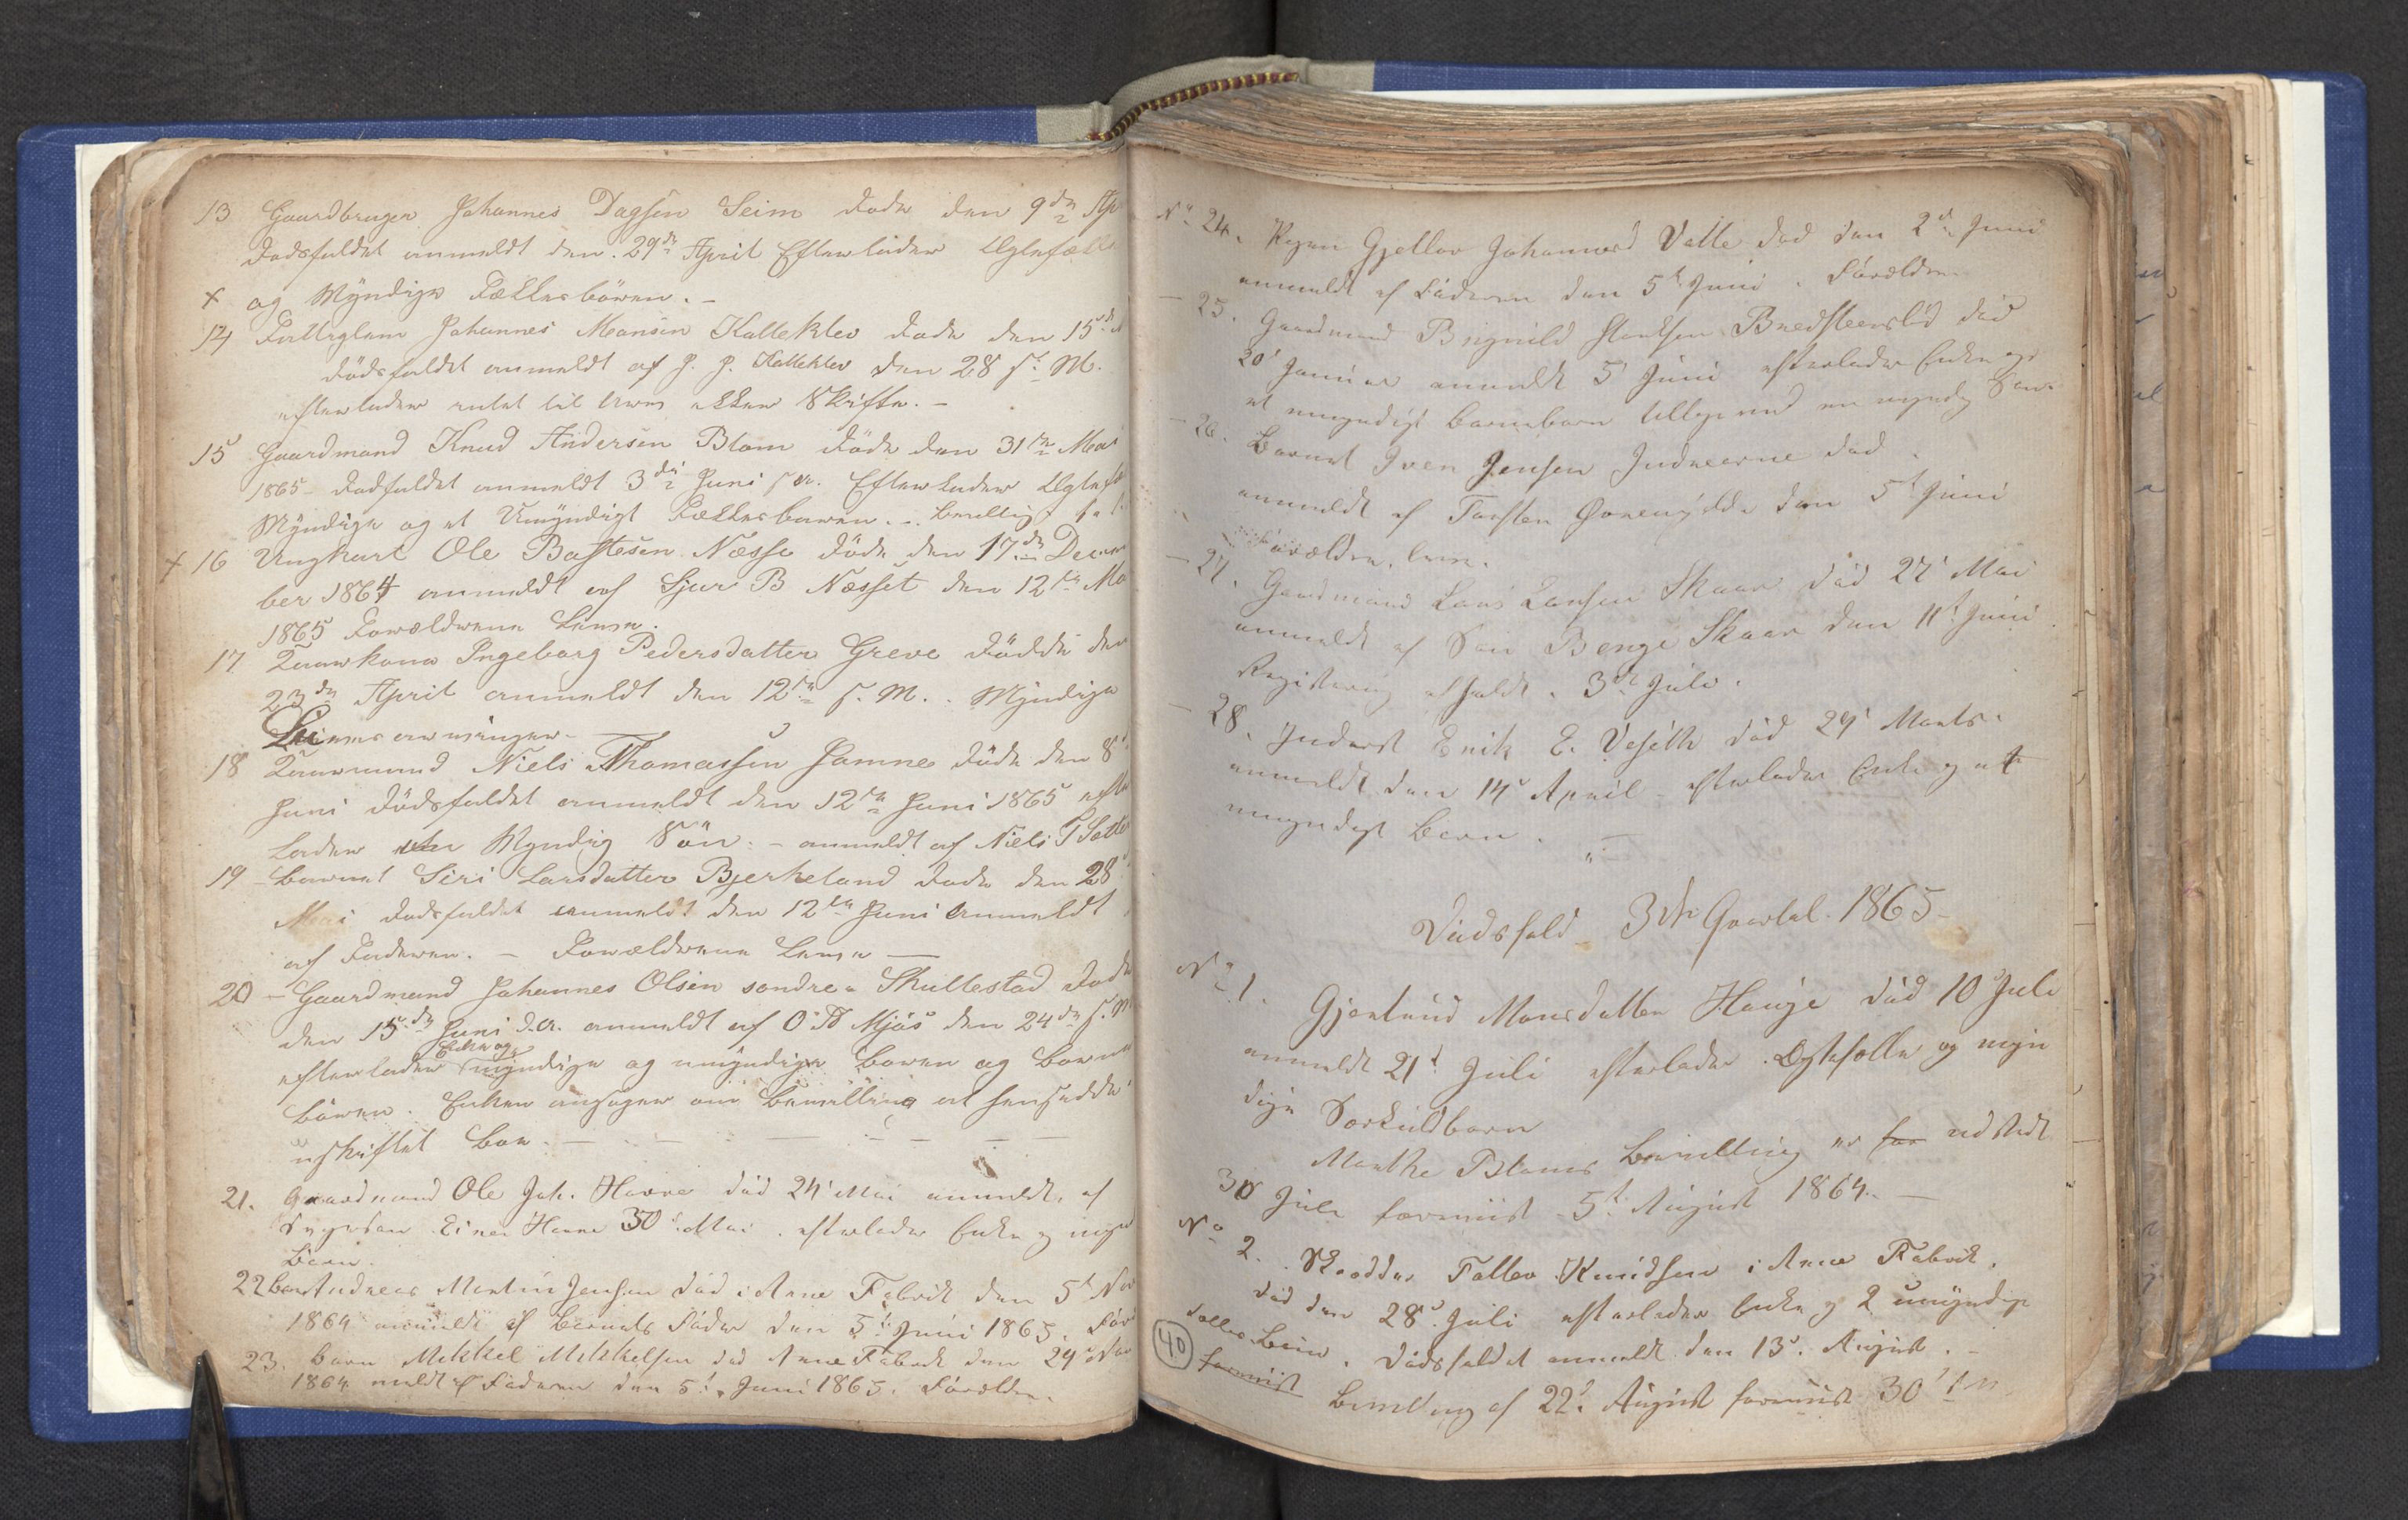 13 Gaardbruger Johannes Dagsen Seim døde den 9de Ap
Dødsfaldet anmeldt den 29de April Efterlader Ægtefælle
x og Myndige Fællesbörn. -
14 Fattiglem Johannes Monsen Kalleklev døde den 15de
Dødsfaldet anmeldt af J. J. Kalleklev den 28 s. M.
efterlader intet til Arv eller Skifte. -
15 Gaardmand Knud Andersen Blom døde den 31te Mai
1865 - Dødfaldet anmeldt 3die Juni s. A. Efterlader Ægtef
Myndige og et Umyndigt Fællesbarn. - Bevilling
x 16 Ungkarl Ole Bastesen Næsse döde den 17de Decem
ber 1864 anmeldt af Sjur B Næsset den 12te Ma
1865 Forældrene Lever.
17 Kaarkone Ingeborg Pedersdatter Greve dödde den
23de April anmeldt den 12te s. M. Myndige
Livsarvinger -
18 Kaarmand Niels Thomassen Jamne döde den 8
Juni Dödsfaldet anmeldt den 12te Juni 1865 efter
Lader en Myndig Sön. - anmeldt af Niels T
19 - Barnet Siri Larsdatter Bjerkeland døde den 28
Mai Dødsfaldet anmeldt den 12te Juni anmeldt
af Faderen. - Forældrene Lever -
20 - Gaardmand Johannes Olsen søndre Skullestad døde
den 15de Juni d.A. anmeldt af O Mjös den 24de s. M.
Enke og
efterlader myndige og umyndige Børn og Barne
börn. Enken ansøger om Bevilling at hensidde i
uskiftet Boe. -
21. Gaardmand Ole Joh. Havre död 24' Mai anmeldt af
Einar Havre 30' Mai. efterlader Enke og
Börn.
22 Barn Andreas Martin Jensen död i Arne Fabrik den 5t Nov
1864 anmeldt af Barnets Fader den 5t Juni 1865.
23. Barn Mikkel Mikkelsen död Arne Fabrik den 29 Nov
1864 meldt af Faderen den 5t. Juni 1865. Forældre.
No 24. Pigen Gjellov Johannesd Valle död den 2d Juni
anmeldt af Faderen den 5t Juni. Forældre
- 25. Gaardmand Brynild Bredsteenslid död
20' Januar anmeldt 5' Juni efterlader Enke og
et umyndigt Barnebarn tilligemed en myndig Sön
- 26. Barnet Iver Jensen Indrearne död
anmeldt af Torsten den 5t Juni
Forældre. lever.
- 27. Gaardmand Lars Larsen Skaar död 27' Mai
anmeldt af Sön Benge Skaar den 11t Juni.
Registrering afholdt. 3d Juli.
- 28. Inderst Erik E. Veseth död 29' Marts.
anmeldt den 14' April - efterlader Enke og et
umyndigt Barn. -
Dödsfald 3die Qvartal 1865 -
No 1. Gjertrud Monsdatter Hauge död 10' Juli
anmeldt 21' Juli efterlader Ægtefælle og myn
dige Særkuldbarn
Marthe Bloms Bevilling er for udstedt
30 Juli forevist 5t August 1864. -
No 2. Skrædder Tollev Knudsen i Arne Fabrik.
död den 28' Juli efterlader Enke og 2 umyndige
Fælles Börn. Dödsfaldet anmeldt den 13' August. -
40
forevist Bevilling af 22' August forevist 30'